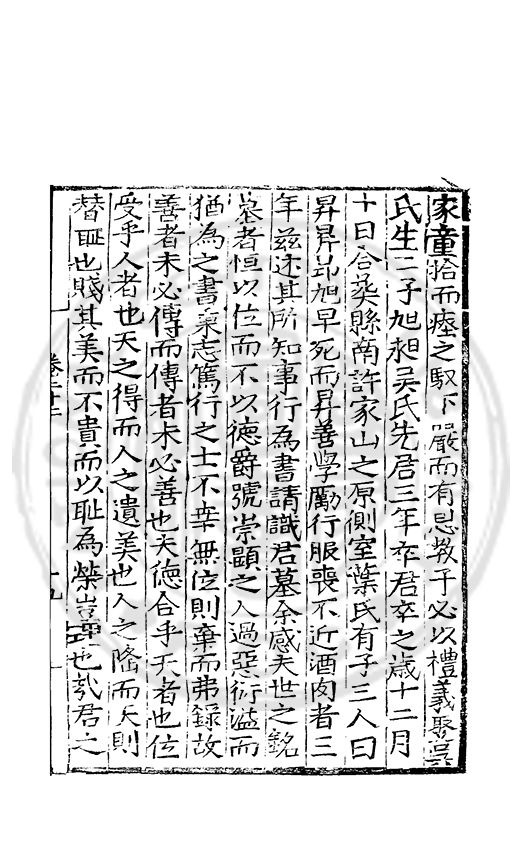 家童拾而瘞之馭下嚴而有恩教子必以禮義娶吳
氏生二子旭昶吳氏先君三年卒君卒之歲十二月
十日合葬縣南許家山之原側室葉氏有子三人曰
昇昇昴旭早死而昇善學勵行服喪不近酒肉者三
年茲述其所知事行為書請識君墓余感夫世之銘
墓者恒以位而不以德爵號崇顯之人過惡衍溢而
猶為之書秉志篤行之士不幸無位則棄而弗錄故
善者未必傳而傳者未必善也夫德合乎天者也位
受乎人者也天之得而人之遺美也人之隆而天則
替恥也賤其美而不貴而以恥為榮豈也哉君之
卷二十二
十九